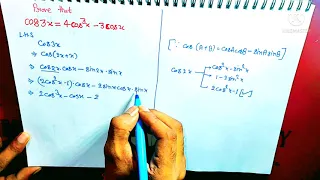 Prove that
cos3x = 4cos³x - 3cosx
LHS
cos3x
⇒ cos(2x+x)
⇒ cos2x.cosx - sin2x.sinx
⇒ (2cos²x-1).cosx - 2sinxcosx.sinx
⇒ 2cos³x - cosx - 2
[∵ cos(A+B) = cosAcosB - sinAsinB]
cos2x
cos²x - sin²x
1 - 2sin²x
2cos²x - 1